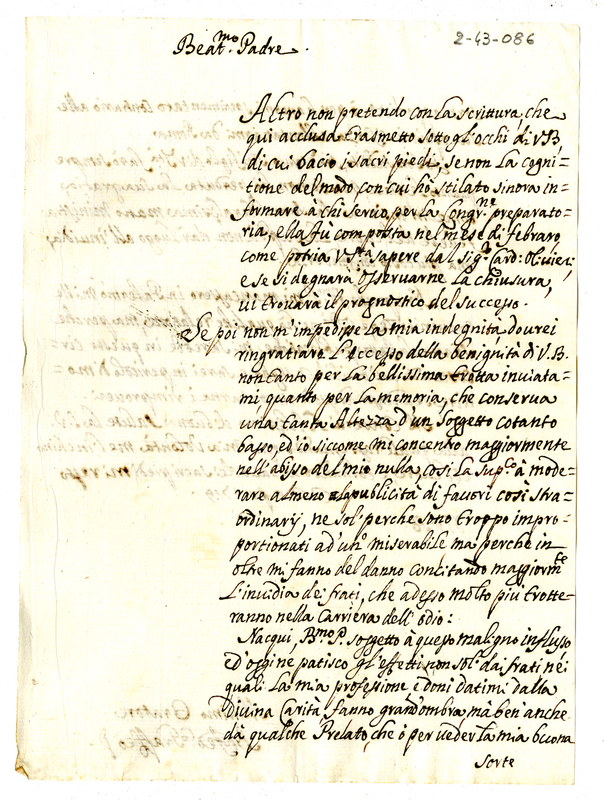 2-43-086
Beat.mo Padre.
Altro non pretendo con la scrittura, che
qui acclusa trasmetto sotto gl'occhi di V.B.
di cui bacio i sacri piedi, se non la cogni=
tione del modo con cui hò stilato sinora in=
formare à chi servo per la Congr.ne preparato=
ria, ella fù composta nel mese di febraro
come potrà V. S.tà sapere dal sig.r Card. Oliuieri
e se si degnarà osseruarne la chiusura,
ui trouarà il prognostico del successo.
Se poi non m'impedisse la mia indegnità, dourei
ringratiare l'eccesso della benignità di V.B.
non tanto per la bellissima trotta inuiata=
mi quanto per la memoria, che conserua
una tanta Altezza d'un soggetto cotanto
basso, ed io siccome mi concentro maggiormente
nell'abisso del mio nulla, così la sup.co à mode=
rare almeno la publicità di fauori così stra=
ordinarij, ne sol' perche sono troppo impro=
portionati ad un' miserabile ma perche in
oltre mi fanno del danno concitando maggiorm.te
l'inuidia de' frati, che adesso molto più trotte=
ranno nella carriera dell'odio:
Nacqui, B.mo P. soggetto à questo maligno influsso
ed oggi ne patisco gl'effetti non sol' da frati ne'
quali la mia professione e doni datimi dalla
Diuina Carità, fanno grand'ombra, ma ben' anche
dà qualche Prelato, che ò per veder la mia buona
sorte